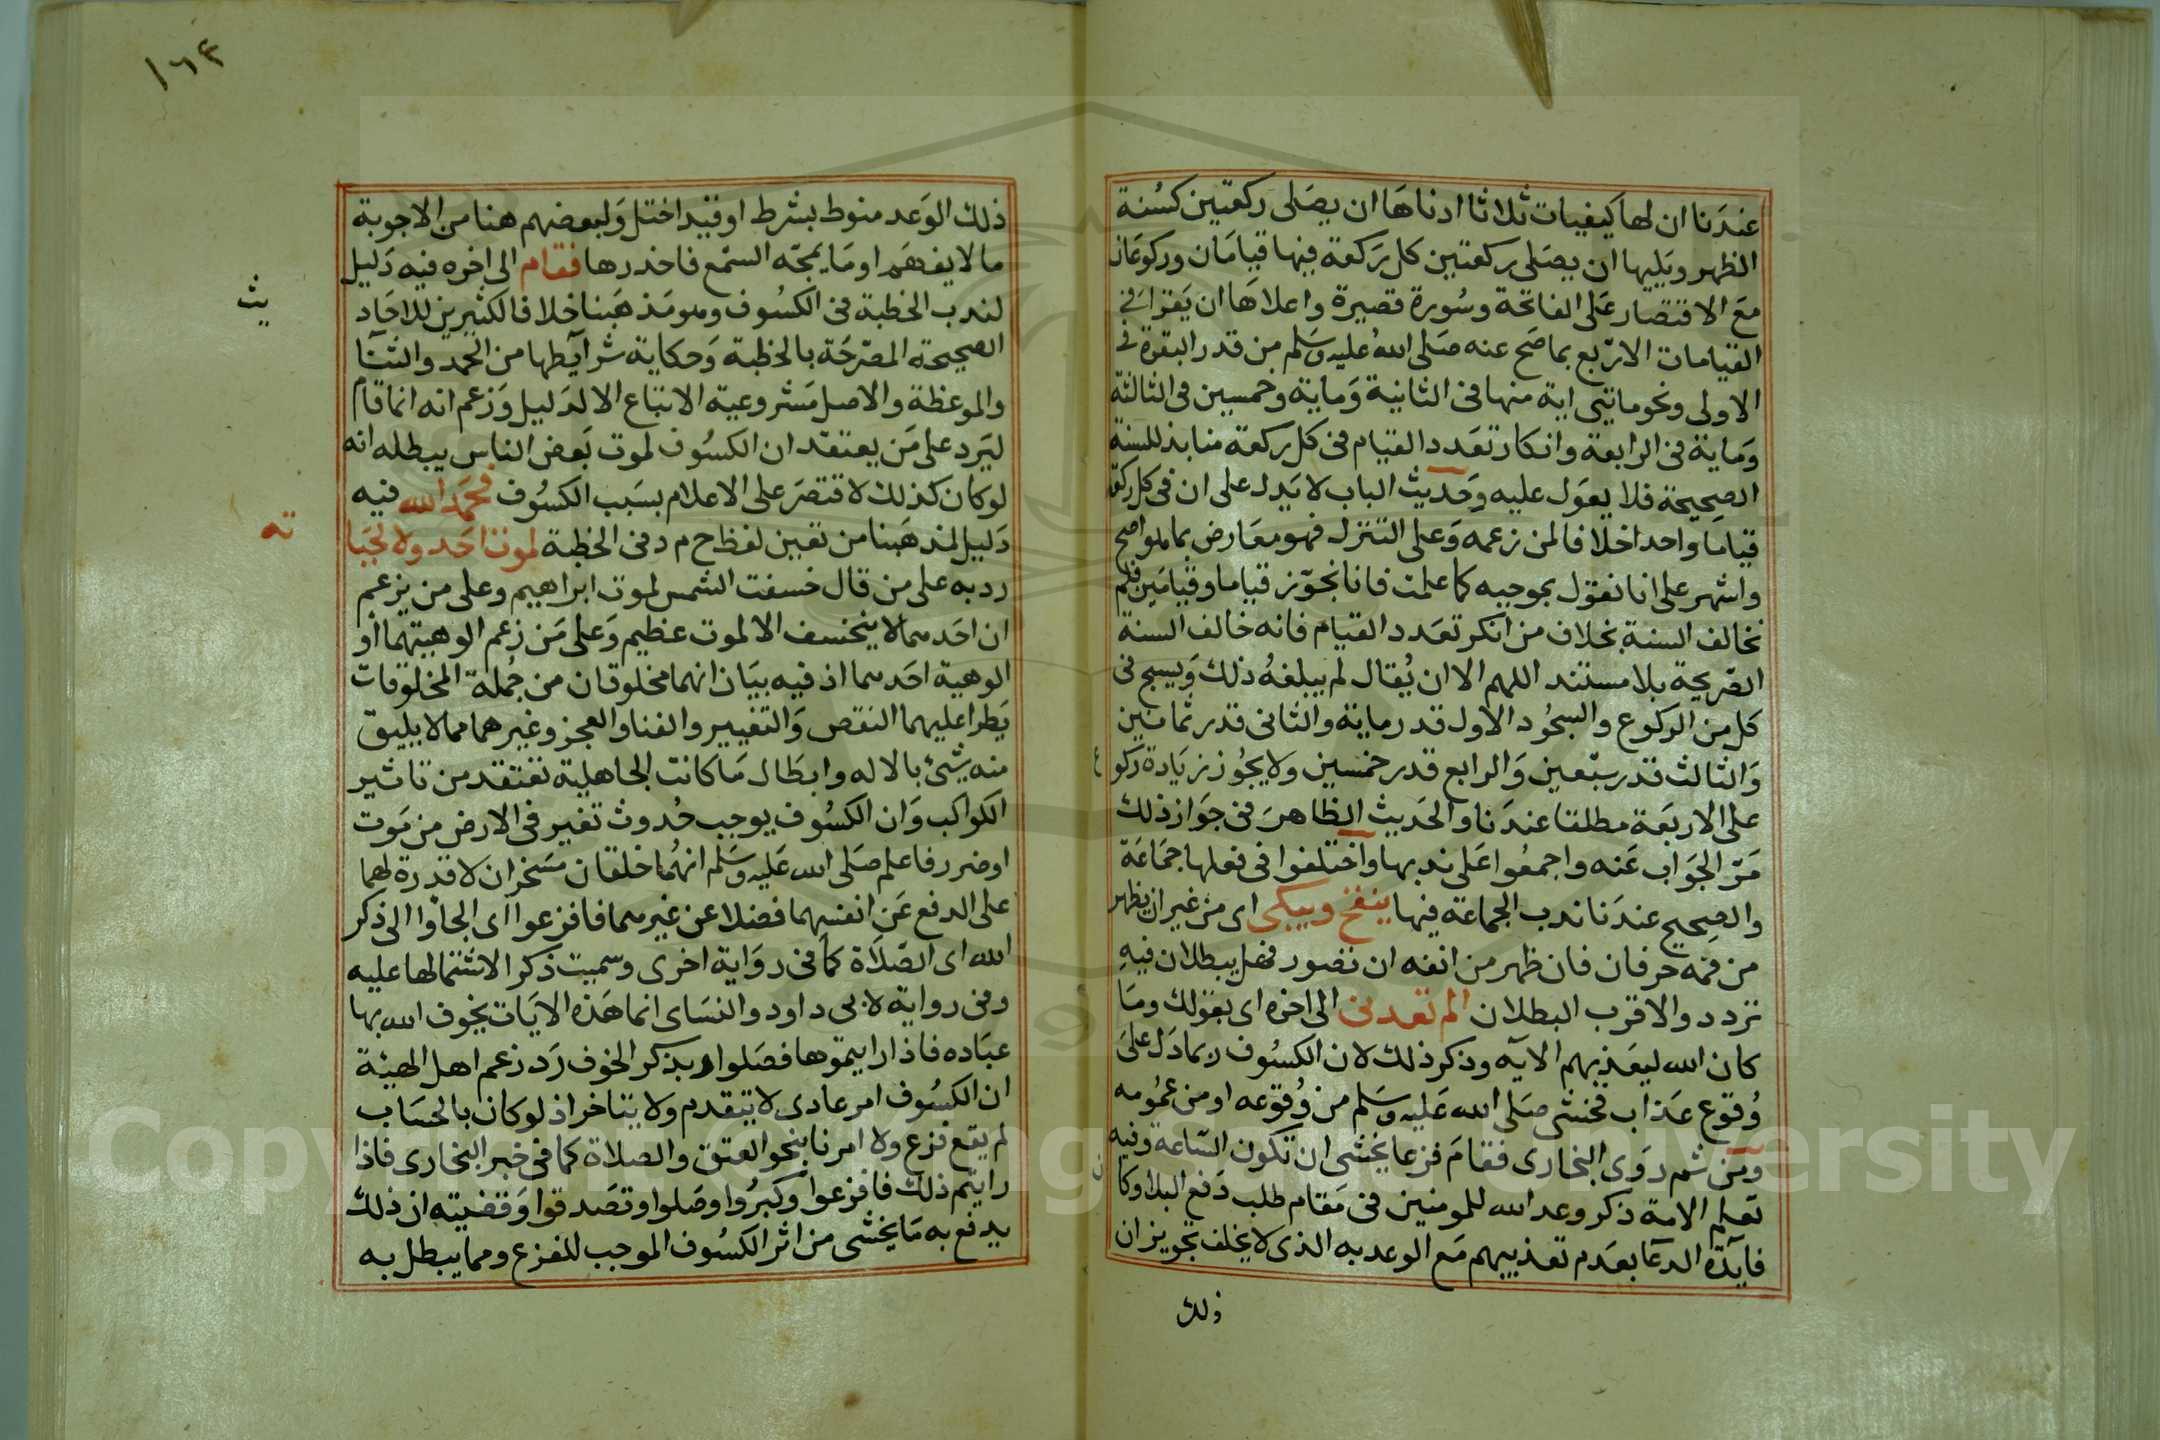 عندنا ان لها كيفيات ثلاثا ادناها ان يصلى ركعتين كسنة
الظهر ويليها ان يصلى ركعتين كل ركعة فيها قيامان وركوعان
مع الاقتصار على الفاتحة وسورة قصيرة واعلاها ان يقرا في
القيامات الاربع بما صح عنه صلى الله عليه وسلم من قدر البقرة في
الاولى ونحو مايتى اية منها فى الثانية وماية وخمسين فى الثالثة
وماية فى الرابعة وانكار تعدد القيام فى كل ركعة منابذ للسنة
الصحيحة فلا يعول عليه وحديث الباب لا يدل على ان فى كل ركعة
قياما واحدا خلافا لمن زعمه وعلى التنزل فهو معارض بما هو اصح
واشهر على انا نقول بموجبه كما علمت فانا نجوز قياما وقيامين فلم
نخالف السنة بخلاف من انكر تعدد القيام فانه خالف السنة
الصريحة بلا مستند اللهم الا ان يقال لم يبلغه ذلك ويسبح فى
كل من الركوع والسجود الاول قدر ماية والثانى قدر ثمانين
والثالث قدر سبعين والرابع قدر خمسين ولا يجوز زيادة ركوع
على الاربعة مطلقا عندنا والحديث الظاهر فى جواز ذلك
مر الجواب عنه واجمعوا على ندبها واختلفوا فى فعلها جماعة
والصحيح عندنا ندب الجماعة فيها ينفخ ويبكى اى من غير ان يظهر
من فمه حرفان فان ظهر من انفه ان تصور فهل يبطلان فيه
تردد والاقرب البطلان الم تعدنى الى اخره اى بقولك وما
كان الله ليعذبهم الاية وذكر ذلك لان الكسوف ربما دل على
وقوع عذاب فخشى صلى الله عليه وسلم من وقوعه او من عمومه
ومن ثم روى البخارى فقام فزعا يخشى ان تكون الساعة وفيه
تعليم الامة ذكر وعد الله للمومنين فى مقام طلب دفع البلا وكان
فايدة الدعا بعدم تعذيبهم مع الوعد به الذى لا يخلف تجويز ان
ذلك
١٦٤
ذلك الوعد منوط بشرط او قيد اختل ولبعضهم هنا من الاجوبة
ما لا يفهم او ما يمجه السمع فاحذرها فقام الى اخره فيه دليل
لندب الخطبة فى الكسوف وهو مذهبنا خلافا لكثيرين للاحاديث
الصحيحة المصرحة بالخطبة وحكاية شرايطها من الحمد والثنا
والموعظة والاصل مشروعية الاتباع الا لدليل وزعم انه انما قام
ليرد على من يعتقد ان الكسوف لموت بعض الناس يبطله انه
لو كان كذلك لاقتصر على الاعلام بسبب الكسوف فحمد الله فيه
دليل لمذهبنا من تعين لفظ ح م د فى الخطبة لموت احد ولا لحياته
رد به على من قال خسفت الشمس لموت ابراهيم وعلى من يزعم
ان احدهما لا ينخسف الا لموت عظيم وعلى من زعم الوهيتهما او
الوهية احدهما اذ فيه بيان انهما مخلوقان من جملة المخلوقات
يطرا عليهما النقص والتغيير والفنا والعجز وغيرهما مما لا يليق
منه شئ بالاله وابطال ما كانت الجاهلية تعتقد من تاثير
الكواكب وان الكسوف يوجب حدوث تغير فى الارض من موت
او ضرر فاعلم صلى الله عليه وسلم انهما خلقان مسخران لا قدرة لهما
على الدفع عن انفسهما فضلا عن غيرهما فافزعوا اى الجاوا الى ذكر
الله اى الصلاة كما فى رواية اخرى وسميت ذكر الاشتمالها عليه
وفى رواية لابى داود والنساى انما هذه الايات يخوف الله بها
عباده فاذا رايتموها فصلوا وبذكر الخوف رد زعم اهل الهيئة
ان الكسوف امر عادى لا يتقدم ولا يتاخر اذ لو كان بالحساب
لم يقع فزع ولا امرنا بنحو العتق والصلاة كما فى خبر البخارى فاذا
رايتم ذلك فافزعوا وكبروا وصلوا وتصدقوا وقضيته ان ذلك
يدفع به ما يخشى من اثر الكسوف الموجب للفزع ومما يبطل به